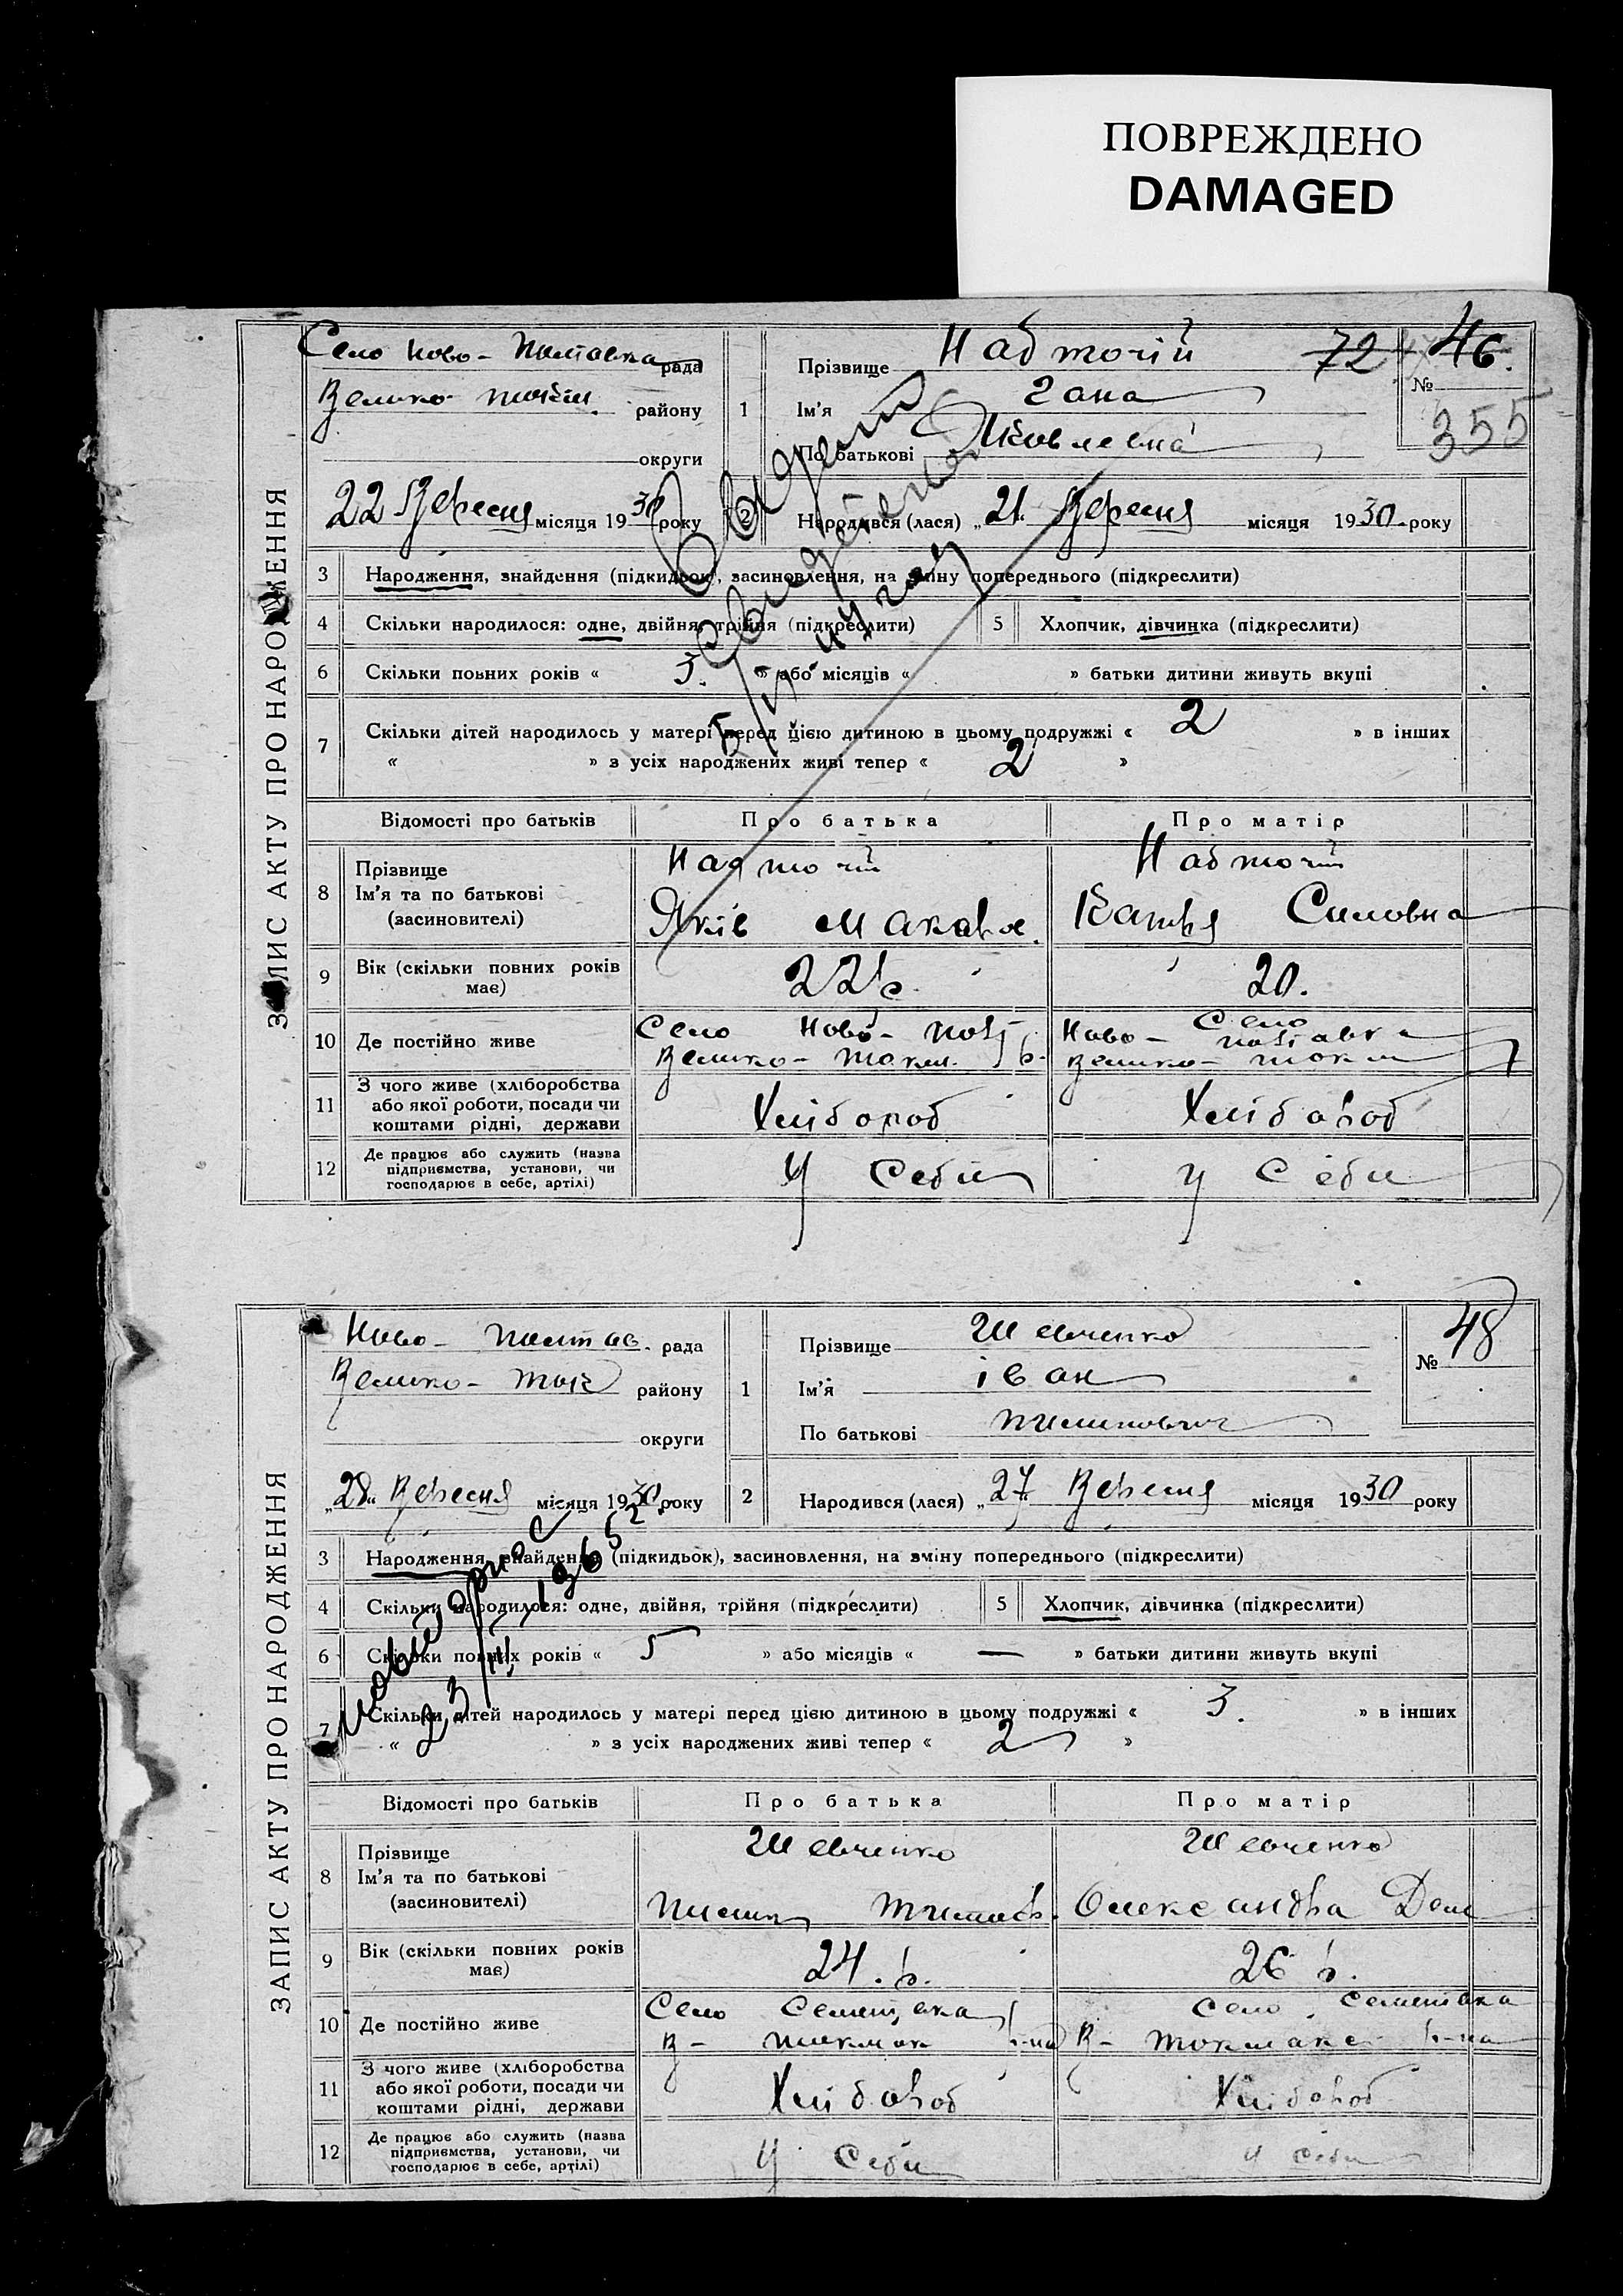 ПОВРЕЖДЕНО
DAMAGED
ЗАПИС АКТУ ПРО НАРОДЖЕННЯ
Село Ново- рада
Велико району
округи
22 Вересня місяця 1930 року
1
Прізвище Надточій
Ім'я Гана
По батькові Яковлевна
72 46.
№
355
2 Народився (лася) „21“ Вересня місяця 1930 року
3 Народження, знайдення (підкидьок), засиновлення, на зміну попереднього (підкреслити)
4 Скільки народилося: одне, двійня, трійня (підкреслити) 5 Хлопчик, дівчинка (підкреслити)
6 Скільки повних років « 3. » або місяців « » батьки дитини живуть вкупі
7 Скільки дітей народилось у матері перед цією дитиною в цьому подружжі « 2 » в інших
« » з усіх народжених живі тепер « 2 »
Відомості про батьків Про батька Про матір
8 Прізвище
Ім'я та по батькові
(засновителі)
Надточій
Яків Макаров.
Надточій
Катря Силовна
9 Вік (скільки повних років має) 22 р. 20.
10 Де постійно живе
Село Ново-
Велико- Токм. р.
Село
Ново-
Велико- Токм
11 З чого живе (хліборобства
або якої роботи, посади чи
коштами рідні, держави
Хлібороб Хлібороб
12 Де працює або служить (назва
підприємства, установи, чи
господарює в себе, артілі)
У Себи у Себи
ЗАПИС АКТУ ПРО НАРОДЖЕННЯ
Ново- Полтав. рада
Велико- Ток району
округи
„28“ Вересня місяця 1930 року
1
Прізвище Шевченко
Ім'я іван
По батькові Пилипович
№ 48
2 Народився (лася) „27“ Вересня місяця 1930 року
3 Народження, знайдення (підкидьок), засиновлення, на зміну попереднього (підкреслити)
4 Скільки народилося: одне, двійня, трійня (підкреслити) 5 Хлопчик, дівчинка (підкреслити)
6 Скільки повних років « 5 » або місяців « — » батьки дитини живуть вкупі
7 Скільки дітей народилось у матері перед цією дитиною в цьому подружжі « 3. » в інших
« » з усіх народжених живі тепер « 2 »
Відомості про батьків Про батька Про матір
8 Прізвище
Ім'я та по батькові
(засиновителі)
Шевченко
Пилип Тимоф.
Шевченко
Олександра Дем
9 Вік (скільки повних років має) 24. р. 26 р.
10 Де постійно живе
Село
В- Токмак р-на
Село
В- Токмаке р-на
11 З чого живе (хліборобства
або якої роботи, посади чи
коштами рідні, держави
Хлібороб Хлібороб
12 Де працює або служить (назва
підприємства, установи, чи
господарює в себе, артілі)
у Себи у себи